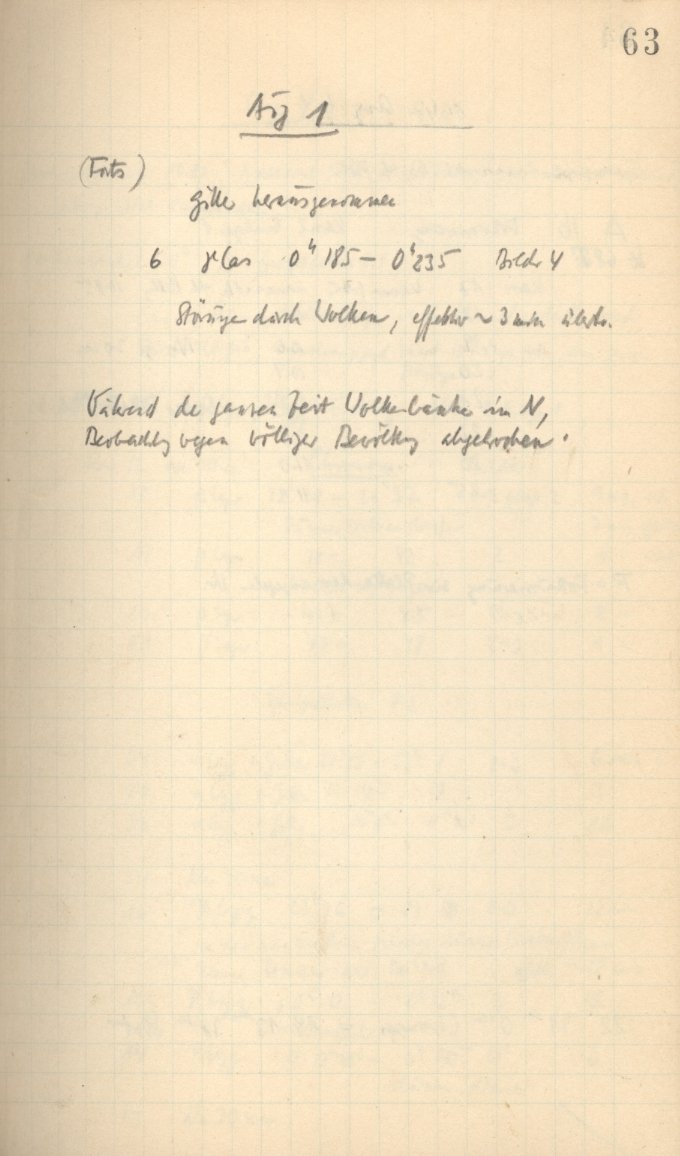 63
Aug 1
(Forts)
Gitter herausgenommen
6 γ Cas 0ʰ 185 – 0ʰ 235 Bilder 4
Störungen durch Wolken, effektiv ~ 3 min
Während der ganzen Zeit Wolkenbänke im N,
Beobachtg wegen völliger Bewölkg abgebrochen.